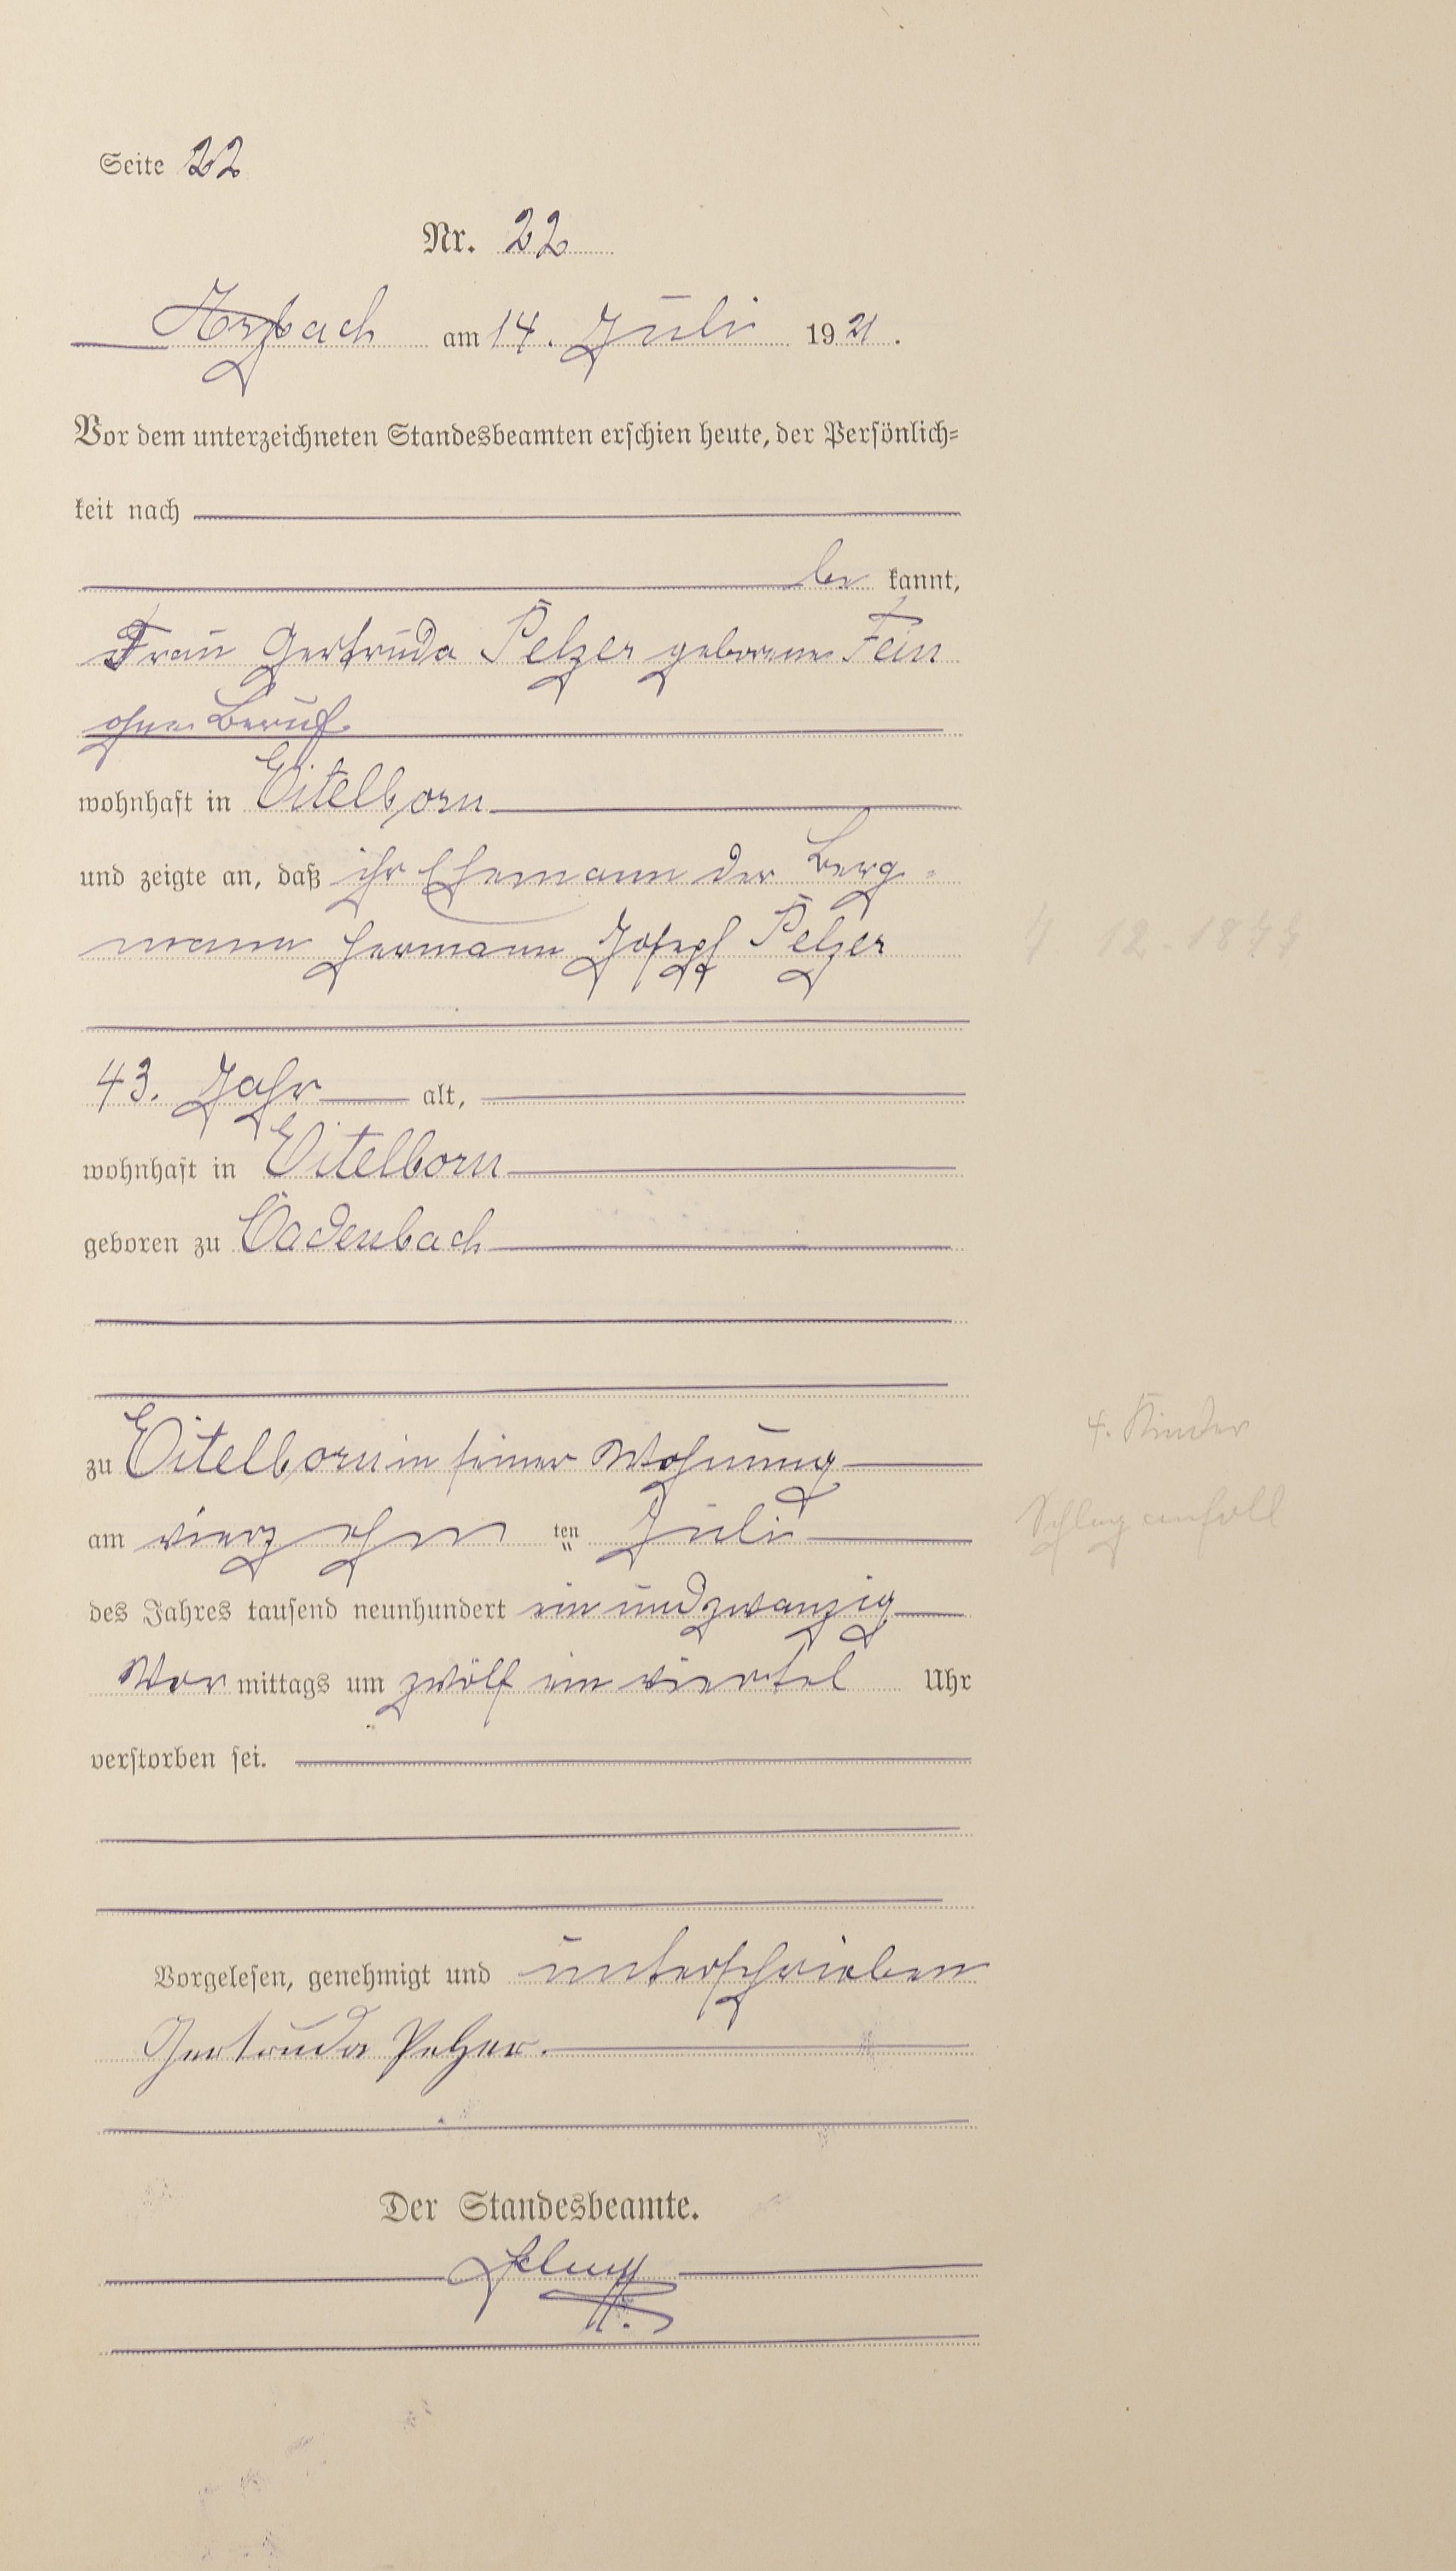 Seite 22
Nr. 22
Arzbach am 14. Juli 1921.
Vor dem unterzeichneten Standesbeamten erschien heute, der Persönlich=
keit nach
be kannt,
Frau Gertruda Pelzer geborene Fein
ohne Beruf
wohnhaft in Eitelborn
und zeigte an, daß ihr Ehemann der Berg-
mann Hermann Josepf Pelzer
7. 12. 1877
43. Jahr alt,
wohnhaft in Eitelborn
geboren zu Cadenbach
4. Kinder
zu Eitelborn in seiner Wohnung
Schlaganfall
am vierzehn ten Juli
des Jahres tausend neunhundert ein und zwanzig
Vor mittags um zwölf ein viertel Uhr
verstorben sei.
Vorgelesen, genehmigt und unterschrieben
Gertruda Pelzer.
Der Standesbeamte.